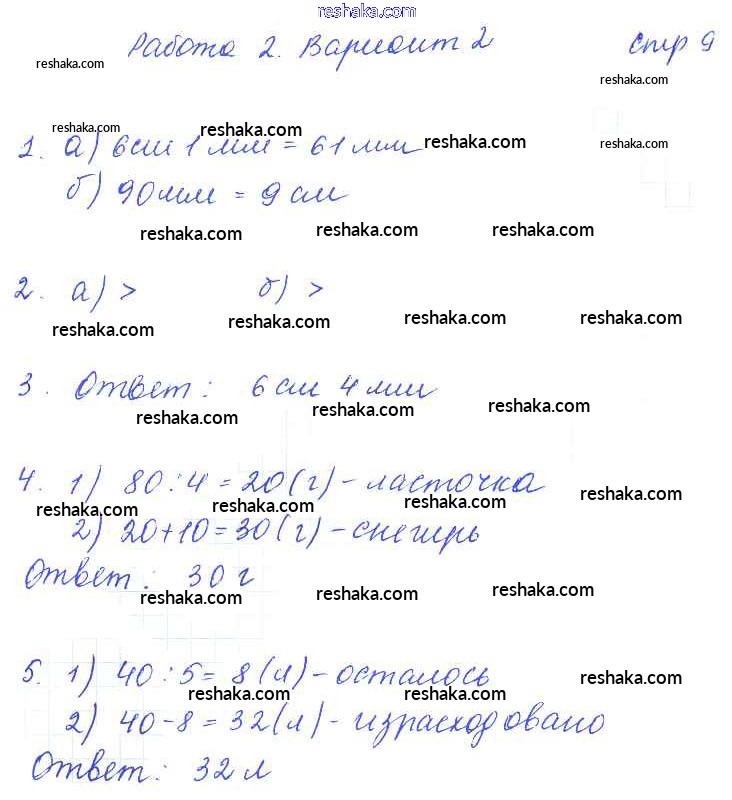 reshaka.com
Работа 2. Вариант 2 стр 9
reshaka.com reshaka.com
reshaka.com reshaka.com reshaka.com reshaka.com
1. а) 6см 1мм = 61мм
б) 90мм = 9см
reshaka.com reshaka.com reshaka.com
2. а) > б) >
reshaka.com reshaka.com reshaka.com reshaka.com
3. Ответ: 6см 4мм
reshaka.com reshaka.com reshaka.com
4. 1) 80:4=20(г)-ласточка
reshaka.com reshaka.com reshaka.com reshaka.com
2) 20+10=30(г)-снегирь
Ответ: 30г
reshaka.com reshaka.com reshaka.com
5. 1) 40:5=8(л)-осталось
reshaka.com reshaka.com reshaka.com
2) 40-8=32(л)-израсходовано
Ответ: 32л